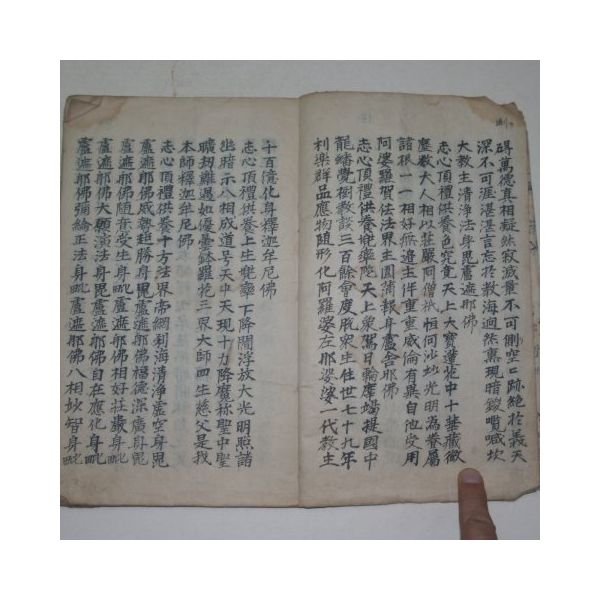 碍萬德眞相凝然寂滅量不可測空亡跡絶於義天
深不可涯湛湛言忘於敎海逈然熏現暗鏁嚂喊坎
大敎主淸淨法身毘盧遮那佛
志心頂禮供養色究竟天上大寶蓮花中十華藏微
塵數大人相以莊嚴阿僧祇恒河沙妙光明爲眷屬
諸根一一相好無邊主伴重重威倫有異自他受用
阿婆羅賀佉法界主圓滿報身盧舍那佛
志心頂禮供養兜率陀天上衆駕日輪摩竭提國中
龍蟠覺樹敎談三百餘會度脫衆生住世七十九年
利樂群品應物隨形化阿羅婆左那婆娑一代敎主
千百億化身釋迦牟尼佛
志心頂禮供養上生兜率下降閻浮放大光明照諸
幽暗示八相成道号天中天現十力降魔称聖中聖
曠刼難遇如優曇鉢羅花三界大師四生慈父是我
本師釋迦牟尼佛
志心頂禮供養十方法界帝網刹海淸淨虛空身毘
盧遮那佛威勢超勝身毘盧遮那佛福德深廣身毘
盧遮那佛大願演法身毘盧遮那佛自在應化身毗
盧遮那佛隨意受生身毗盧遮那佛相好莊嚴身毗
盧遮那佛彌綸正法身毗盧遮那佛八相妙智身毗